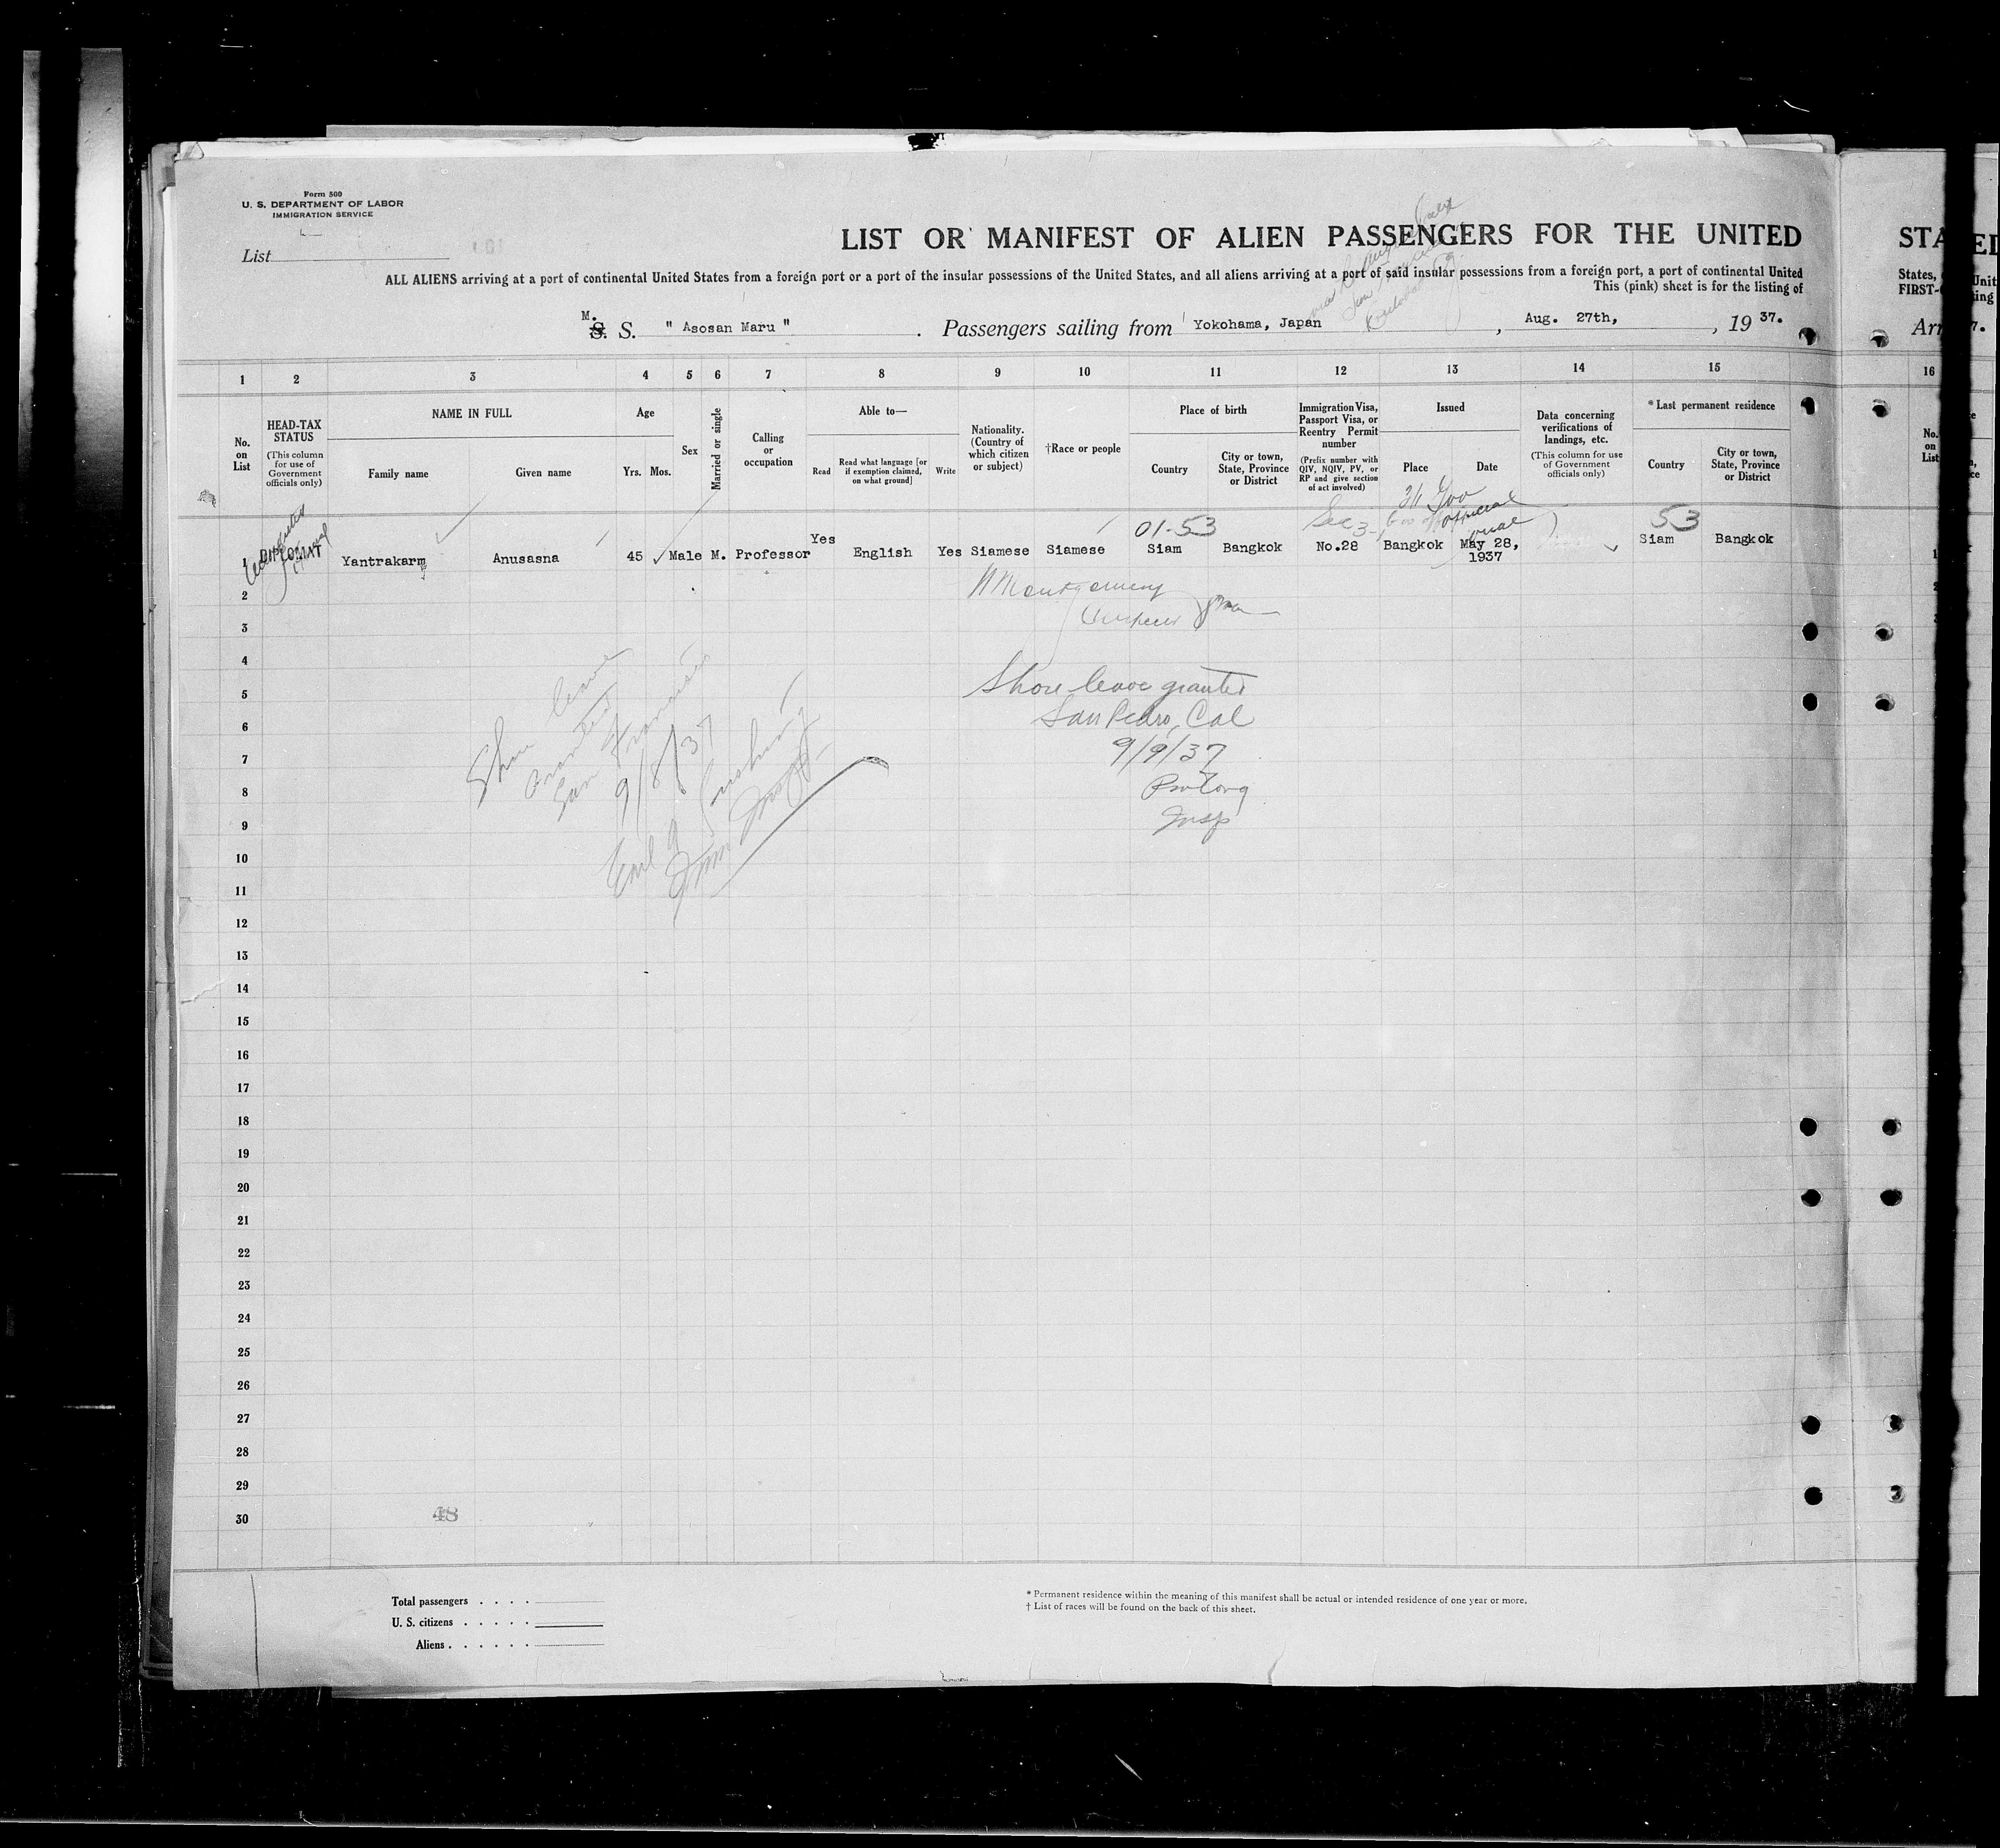 Form 500
U. S. DEPARTMENT OF LABOR
IMMIGRATION SERVICE
List
LIST OR MANIFEST OF ALIEN PASSENGERS FOR THE UNITED
ALL ALIENS arriving at a port of continental United States from a foreign port or a port of the insular possessions of the United States, and all aliens arriving at a port of said insular possessions from a foreign port, a port of continental United
This (pink) sheet is for the listing of
M. S. S. " Asosan Maru " . Passengers sailing from Yokohama, Japan , Aug. 27th, , 19 37.
STA
States,
FIRST-
Arr
1 2 3 4 5 6 7 8 9 10 11 12 13 14 15 16
No. on List
HEAD-TAX STATUS
(This column for use of Government officials only)
NAME IN FULL
Family name Given name
Age
Yrs. Mos.
Sex
Married or single
Calling or occupation
Able to—
Read Read what language [or if exemption claimed, on what ground] Write
Nationality. (Country of which citizen or subject)
†Race or people
Place of birth
Country City or town, State, Province or District
Immigration Visa, Passport Visa, or Reentry Permit number
(Prefix number with QIV, NQIV, PV, or RP and give section of act involved)
Issued
Place Date
Data concerning verifications of landings, etc.
(This column for use of Government officials only)
*Last permanent residence
Country City or town, State, Province or District
No. on List
01-53 Sec 3-1 Official 53
1 DIPLOMAT Yantrakarm Anusasna 45 Male M. Professor Yes English Yes Siamese Siamese Siam Bangkok No.28 Bangkok May 28, 1937 Siam Bangkok
2
3
4
5
6
7
8
9
10
11
12
13
14
15
16
17
18
19
20
21
22
23
24
25
26
27
28
29
30
Montgomery
Shore leave granted
San Pedro, Cal
9/9/37
Insp
Shore leave
granted
San Francisco
9/8/37
48
Total passengers . . . .
U. S. citizens . . . . .
Aliens . . . . . .
* Permanent residence within the meaning of this manifest shall be actual or intended residence of one year or more.
† List of races will be found on the back of this sheet.